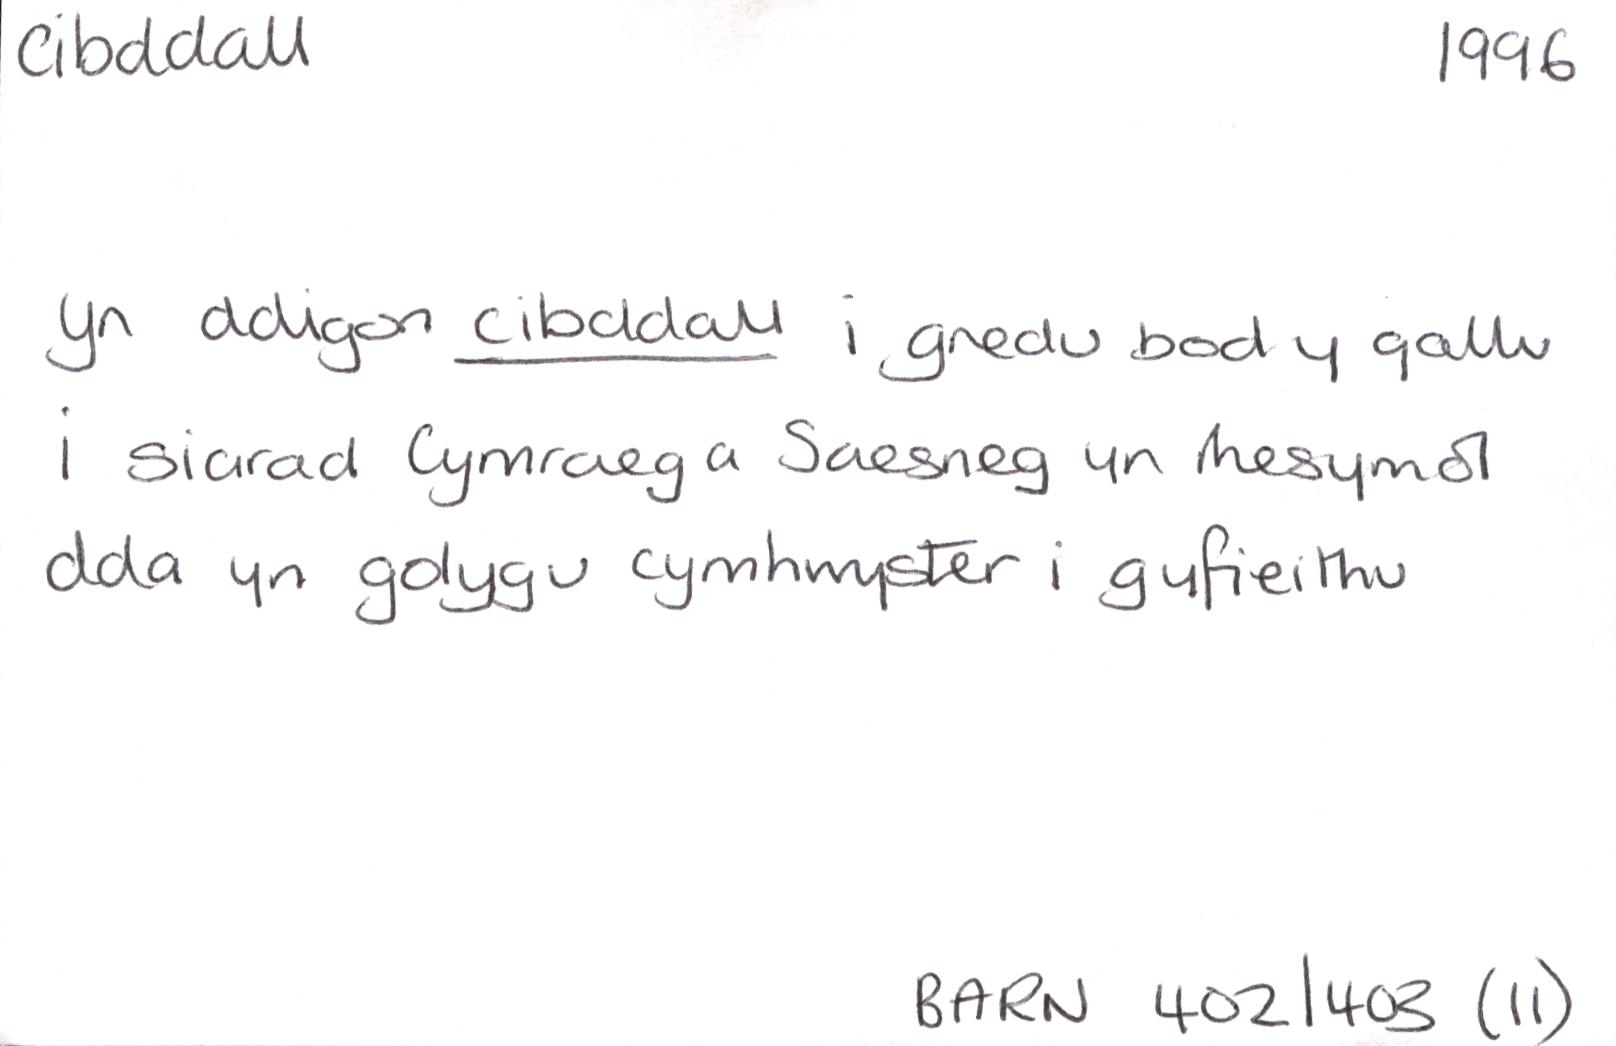 cibddall 1996
yn ddigon cibddall i gredu bod y gallu
i siarad Cymraeg a Saesneg yn rhesymol
dda yn golygu cymhwyster i gyfieithu
BARN 402/403 (11)